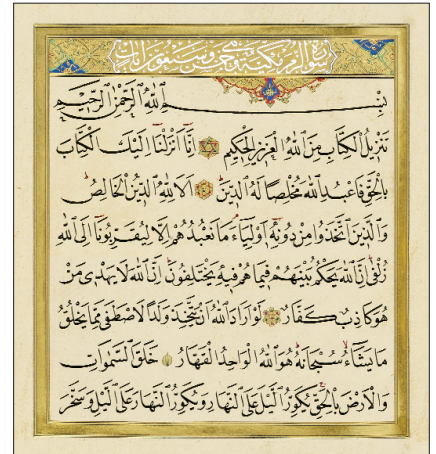 سورة الزمر مكية وهي خمس وسبعون
بِسْمِ اللّٰهِ الرَّحْمٰنِ الرَّحِيمِ
تَنْزِيلُ الْكِتَابِ مِنَ اللّٰهِ الْعَزِيزِ الْحَكِيمِ اِنَّا اَنْزَلْنَا اِلَيْكَ الْكِتَابَ
بِالْحَقِّ فَاعْبُدِ اللّٰهَ مُخْلِصًا لَهُ الدِّينَ اَلَا لِلّٰهِ الدِّينُ الْخَالِصُ
وَالَّذِينَ اتَّخَذُوا مِنْ دُونِهِ اَوْلِيَاءَ مَا نَعْبُدُهُمْ اِلَّا لِيُقَرِّبُونَا اِلَى اللّٰهِ
زُلْفٰى اِنَّ اللّٰهَ يَحْكُمُ بَيْنَهُمْ فِيمَا هُمْ فِيهِ يَخْتَلِفُونَ اِنَّ اللّٰهَ لَا يَهْدِى مَنْ
هُوَ كَاذِبٌ كَفَّارٌ لَوْ اَرَادَ اللّٰهُ اَنْ يَتَّخِذَ وَلَدًا لَاصْطَفٰى مِمَّا يَخْلُقُ
مَا يَشَاءُ سُبْحَانَهُ هُوَ اللّٰهُ الْوَاحِدُ الْقَهَّارُ خَلَقَ السَّمٰوَاتِ
وَالْاَرْضَ بِالْحَقِّ يُكَوِّرُ الَّيْلَ عَلَى النَّهَارِ وَيُكَوِّرُ النَّهَارَ عَلَى الَّيْلِ وَسَخَّرَ